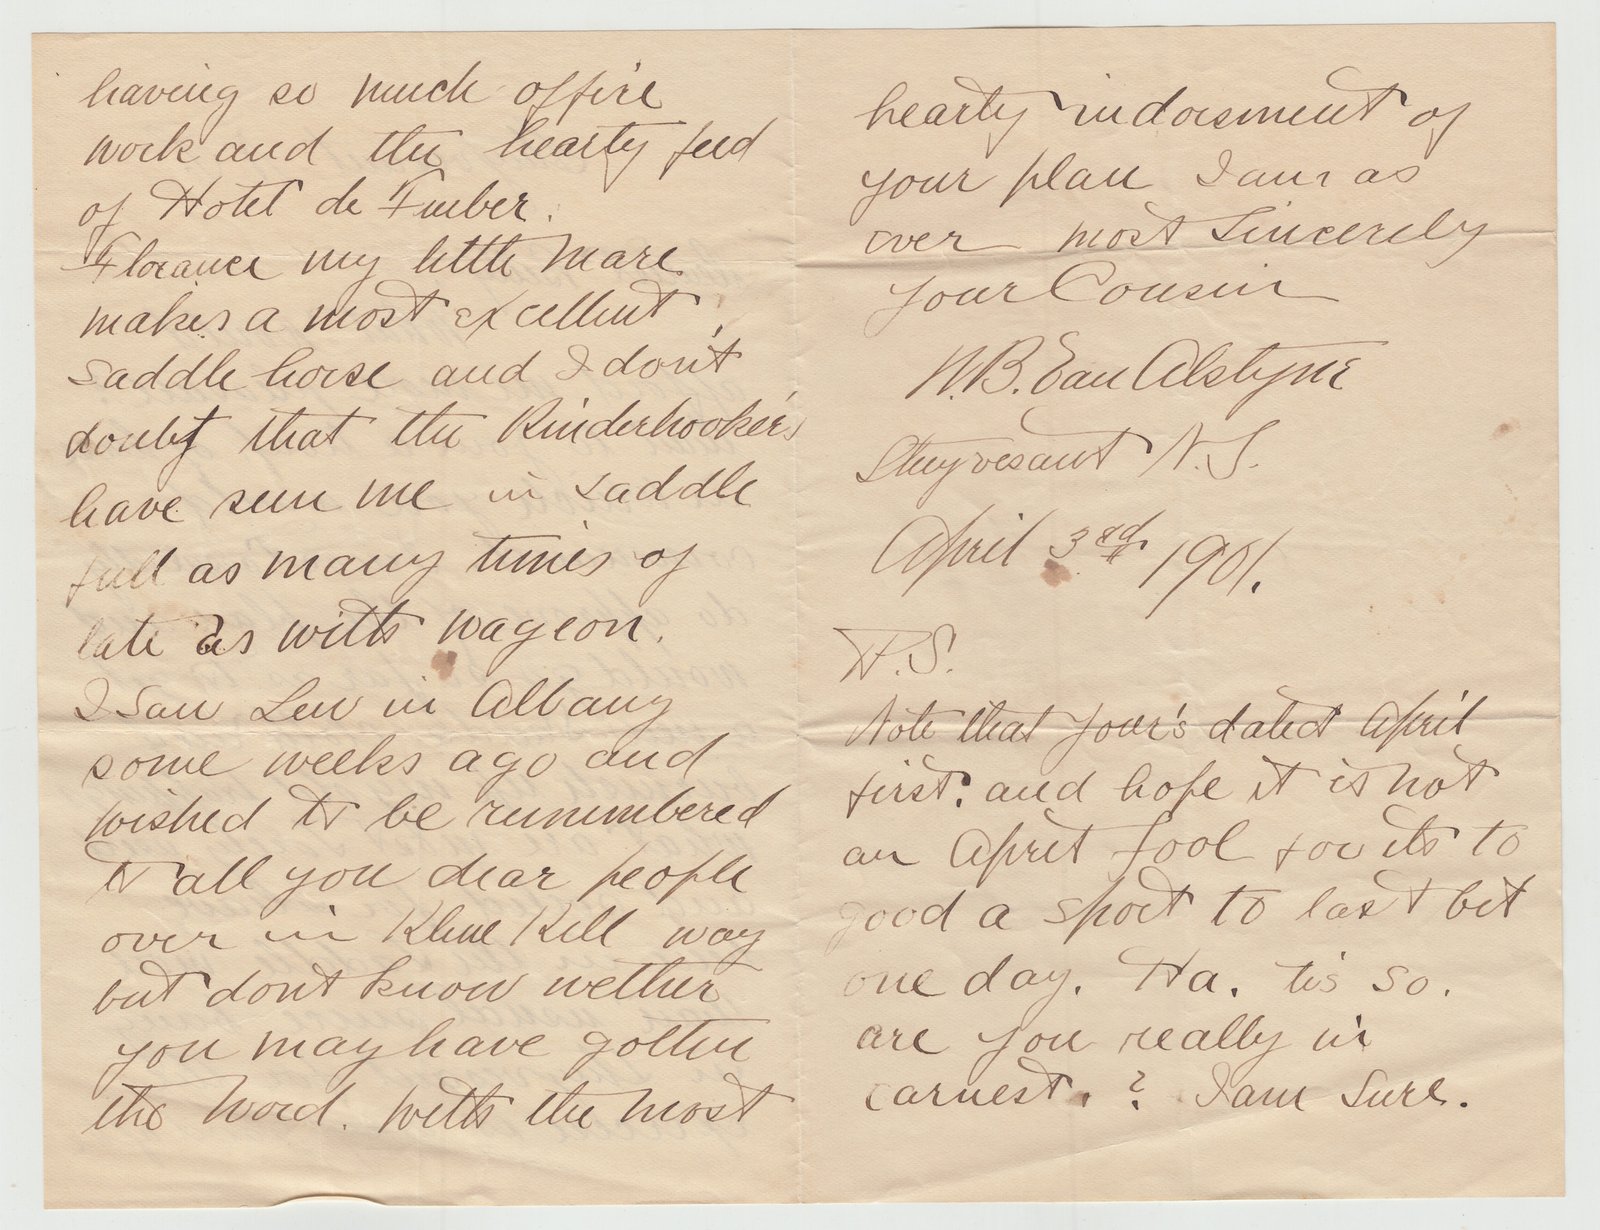 having so much office
work and the hearty feed
of Hotel de Fuuber.
Florance my little Mare
makes a most excellent
saddle horse and I don't
doubt that the Kinderhooker's
have seen me in saddle
full as many times of
late as with wageon.
I saw Lew in Albany
some weeks ago and
wished to be remembered
to all you dear people
over in Kline Kill way
but don't know wether
you may have gotten
the word. With the most
hearty indorsment of
your plan I am as
ever most Sincerely
your Cousin
W.B. Van Alstyne
Stuyvesant N.Y.
April 3rd 1901.
P.S.
Note that your's dated April
first. and hope it is not
an April fool for its to
good a sport to last bet
one day. Ha. tis so.
are you really in
earnest.? I am Sure.